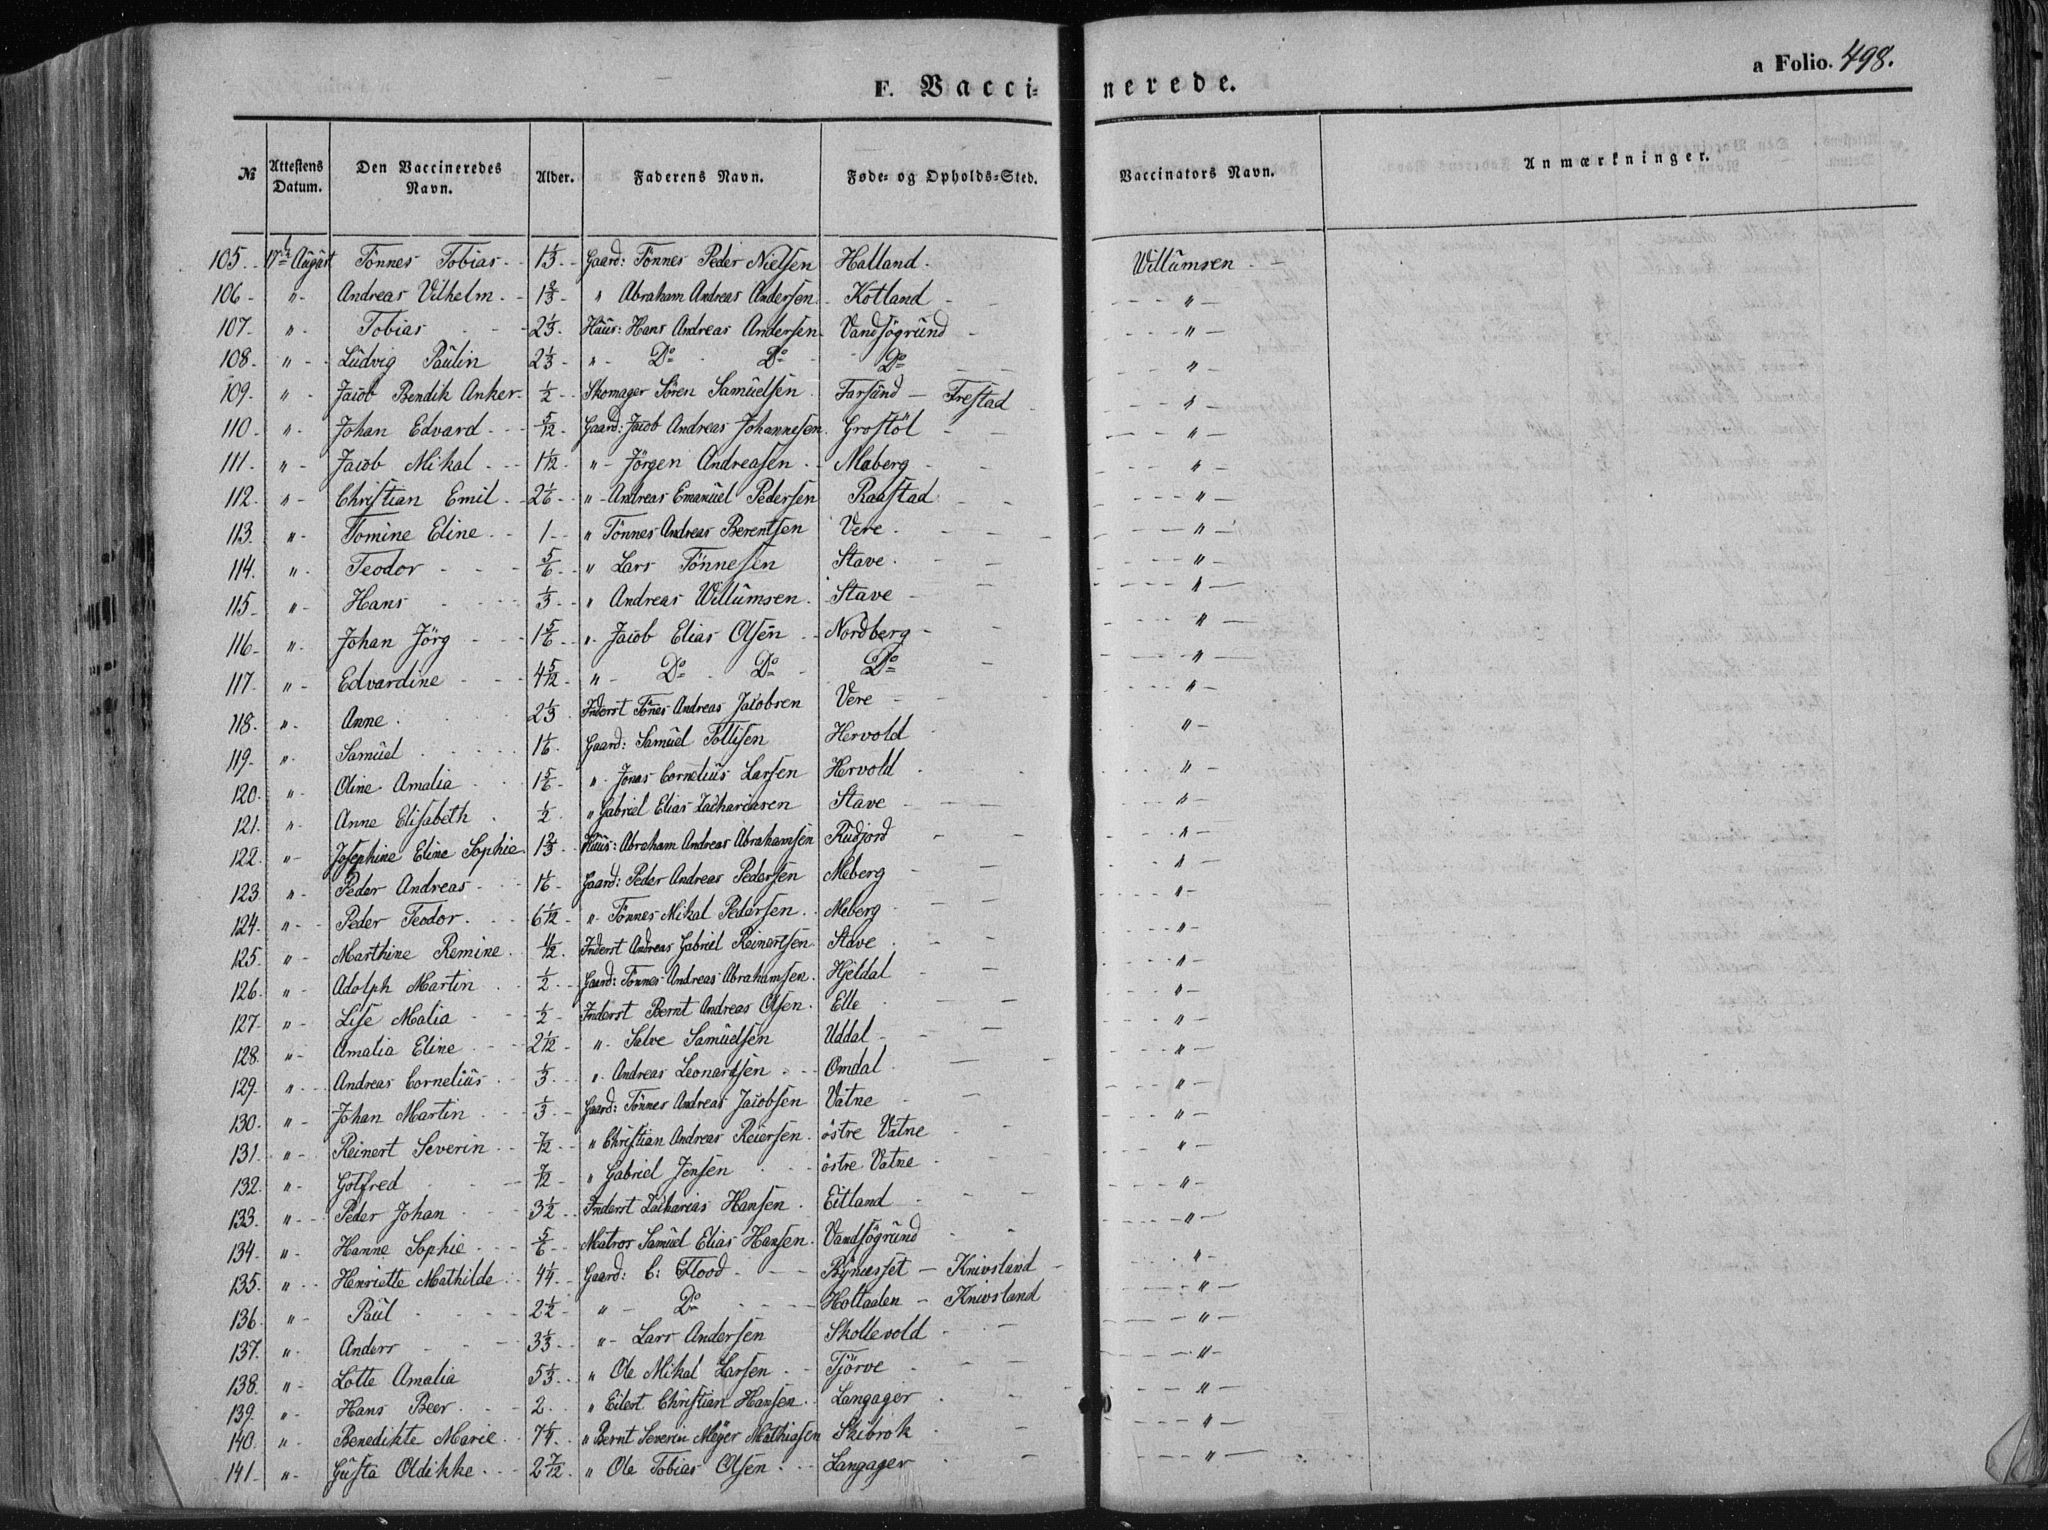 a Folio. 498.
F. Vaccinerede.
№ Attestens Datum. Den Vaccineredes Navn. Alder. Faderens Navn. Føde- og Opholds-Sted. Vaccinators Navn. Anmærkninger.
105. 17de August Tönnes Tobias 1 1/3 Gaard: Tönnes Peder Nielsen Halland. Willumsen
106 " Andreas Vilhelm 1 2/3 " Abraham Andreas Andersen Kotland "
107. " Tobias 2 1/3 Huus: Hans Andreas Andersen Vandsögrund "
108. " Ludvig Paulin 2 1/3 " Do Do Do "
109. " Jacob Bendik Anker 1/2 Skomager Sören Samuelsen Farsund — Frestad "
110. " Johan Edvard 5/12 Gaard: Jacob Andreas Johannesen. Grostöl "
111. " Jacob Mikal 1 1/12 " Jörgen Andreasen Maberg "
112. " Christian Emil 2 1/6 " Andreas Emanuel Pedersen Raastad "
113. " Tomine Eline 1 " Tönnes Andreas Berentsen Vere "
114. " Teodor 5/6 " Lars Tönnesen Stave "
115. " Hans 1/3 " Andreas Willumsen Stave "
116. " Johan Jörg 1 5/6 " Jacob Elias Olsen Nordberg "
117. " Edvardine 4 5/12 " Do Do Do "
118. " Anne 2 1/3 Inderst Tönes Andreas Jacobsen Vere "
119. " Samuel 1 1/6 Gaard: Samuel Tollisen Hervold "
120. " Oline Amalia 1 5/6 " Jonas Cornelius Larsen Hervold "
121. " Anne Elisabeth 1/2 " Gabriel Elias Zachariasen Stave "
122. " Josephine Eline Sophie 1 2/3 Huus: Abraham Andreas Abrahamsen Rudjord "
123 " Peder Andreas 1 1/6 Gaard: Peder Andreas Pedersen Meberg "
124. " Peder Teodor 6 1/12 " Tönnes Mikal Pedersen Meberg "
125. " Marthine Remine Inderst Andreas Gabriel Reinertsen Stave "
126. " Adolph Martin 1/2 Gaard: Tönnes Andreas Abrahamsen. Hjeldal "
127. " Lise Malia 1/2 Inderst Bernt Andreas Olsen. Elle "
128. " Amalia Eline 2 1/12 " Salve Samuelsen Uddal "
129. " Andreas Cornelius 1/3 " Andreas Leonardsen Omdal "
130. " Johan Martin 1/3 Gaard: Tönnes Andreas Jacobsen Vatne "
131. " Reinert Severin 7/12 " Christian Andreas Reiersen östre Vatne "
132. " Gotfred 7/12 " Gabriel Jensen östre Vatne "
133. " Peder Johan 3 1/2 Inderst Zacharias Hansen Eitland "
134. " Hanne Sophie 5/6 Matros Samuel Elias Hansen Vandsögrund "
135. " Henriette Mathilde 4 1/4 Gaard: C: Flood Bynesset — Knivsland "
136. " Paul 2 1/2 " Do Holtaalen — Knivsland "
137. " Anders 3 1/3 " Lars Andersen Skollevold "
138. " Lotte Amalia 5 1/3 " Ole Mikal Larsen Tjörve "
139. " Hans Beer 2 " Eilert Christian Hansen Langager "
140. " Benedikte Marie 7 1/4 " Bernt Severin Meyer Mathiasen Skibrok "
141. " Gusta Oldikke 2 7/12 " Ole Tobias Olsen Langager "